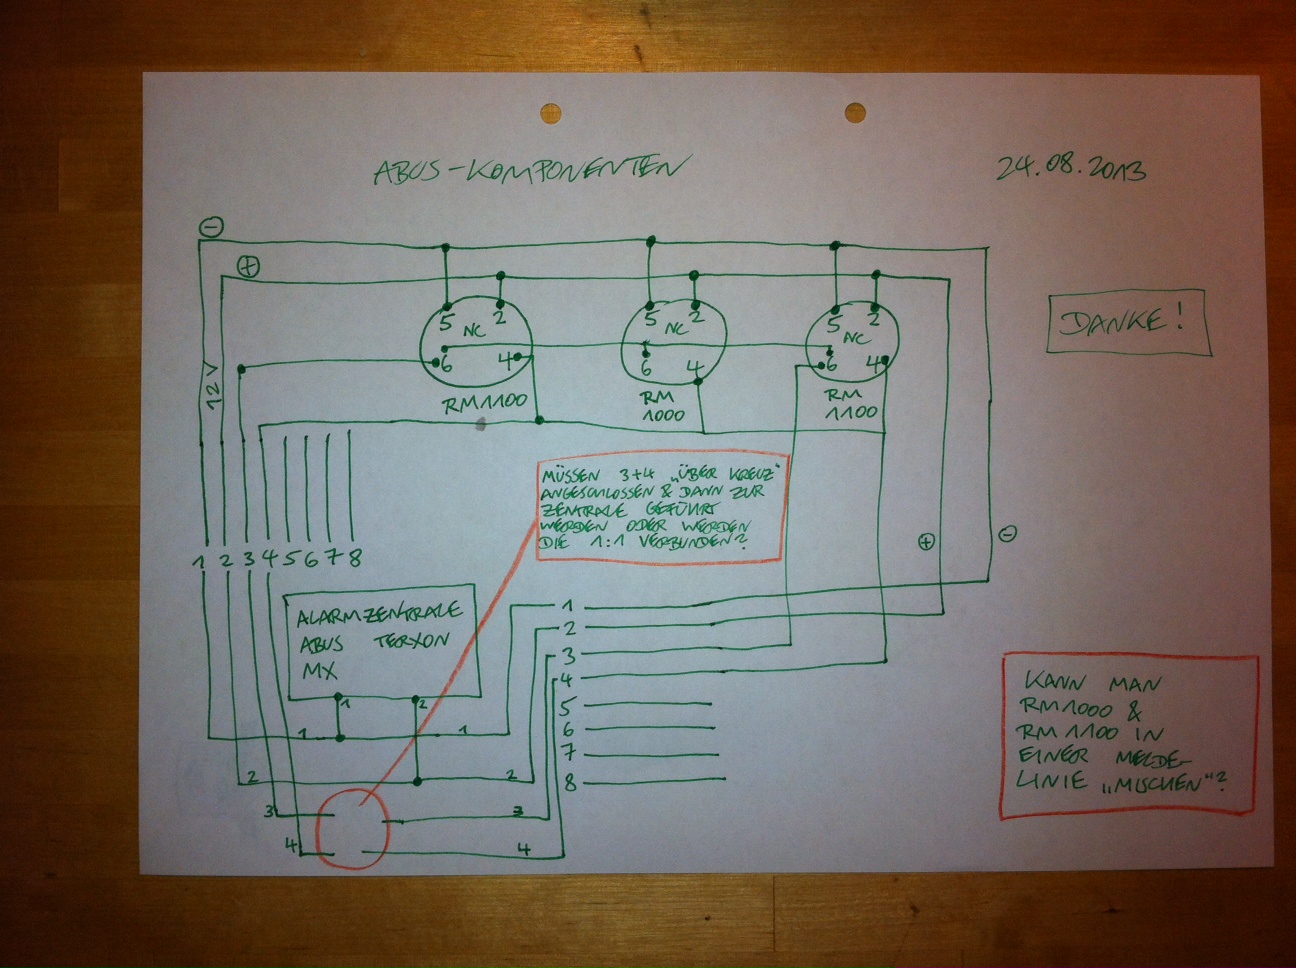 ABUS-KOMPONENTEN
24.08.2013
−
+
5 2
NC
6 4
RM1100
5 2
NC
6 4
RM
1000
5 2
NC
6 4
RM
1100
DANKE!
12V
MÜSSEN 3+4 „ÜBER KREUZ"
ANGESCHLOSSEN & DANN ZUR
ZENTRALE GEFÜHRT
WERDEN ODER WERDEN
DIE 1:1 VERBUNDEN?
+
−
1 2 3 4 5 6 7 8
ALARMZENTRALE
ABUS TERXON
MX
1 2
1 1
2 2
3 3
4 4
1
2
3
4
5
6
7
8
KANN MAN
RM1000 &
RM1100 IN
EINER MELDE-
LINIE „MISCHEN"?